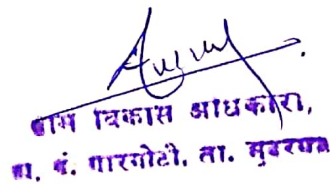 ग्राम विकास अधिकारी,
ग्रा. पं. गारगोटी, ता. भुदरगड